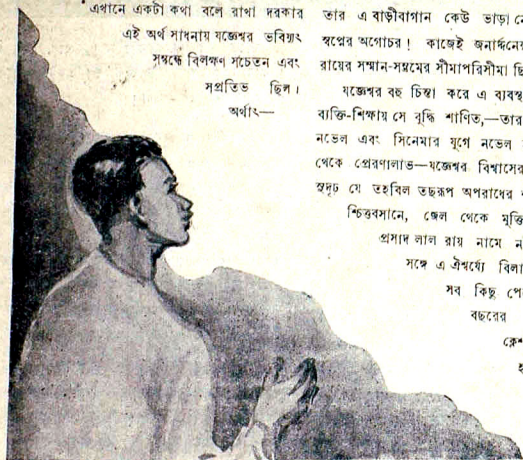 এখানে একটা কথা বলে রাখা দরকার
এই অর্থ সাধনায় যজ্ঞেশ্বর ভবিষ্যৎ
সম্বন্ধে বিলক্ষণ সচেতন এবং
সপ্রতিভ ছিল।
অর্থাৎ—
তার এ বাড়ীবাগান কেউ ভাড়া
স্বপ্নের অগোচর! কাজেই জনার্দ্দনের
রায়ের সম্মান-সম্ভ্রমের সীমাপরিসীমা
যজ্ঞেশ্বর বহু চিন্তা করে এ
ব্যক্তি-শিক্ষায় সে বুদ্ধি শাণিত,—তার
নভেল এবং সিনেমার যুগে নভেল
থেকে প্রেরণালাভ—যজ্ঞেশ্বর বিশ্বাসের
সুদৃঢ় যে তহবিল তছরূপ অপরাধের
শ্চিত্তবসানে, জেল থেকে
প্রসাদ লাল রায় নামে
সঙ্গে এ ঐশ্বর্য্যে
সব কিছু
বছরের